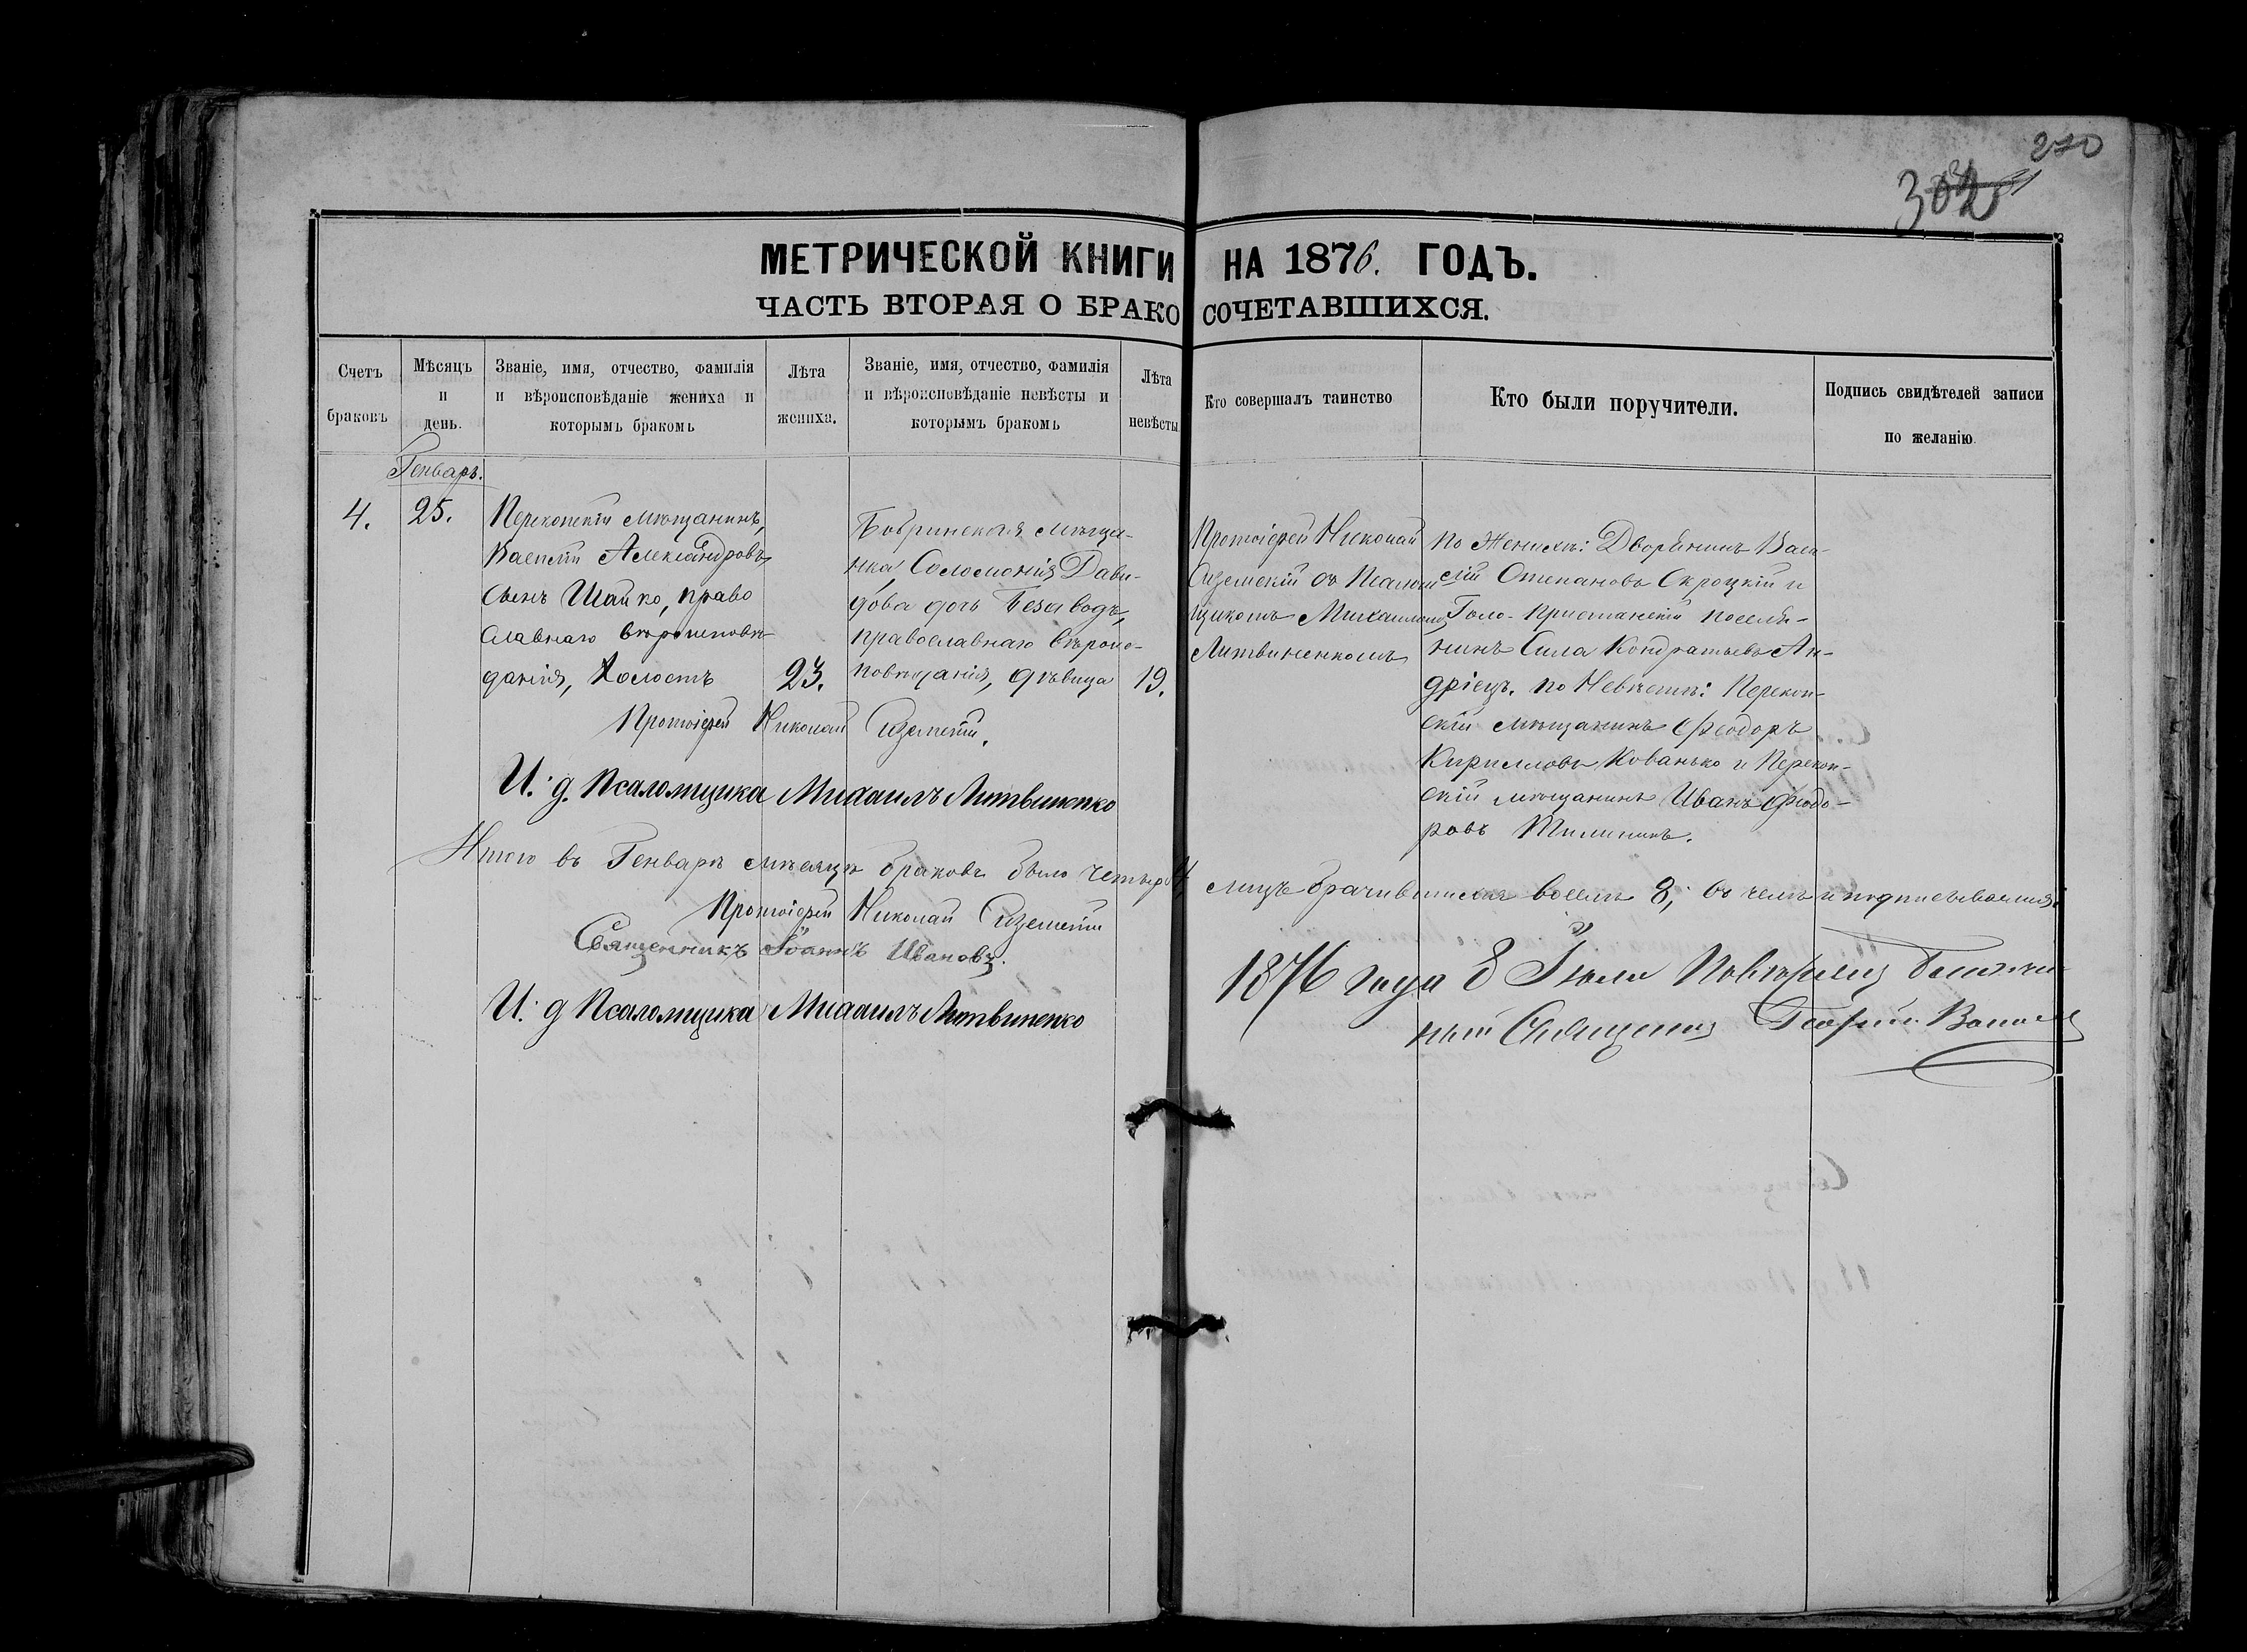 270
302
МЕТРИЧЕСКОЙ КНИГИ НА 1876. ГОДЪ.
ЧАСТЬ ВТОРАЯ О БРАКОСОЧЕТАВШИХСЯ.
Счетъ браковъ
Мѣсяцъ и день.
Званіе, имя, отчество, фамилія и вѣроисповѣданіе жениха и которымъ бракомъ
Лѣта жениха.
Званіе, имя, отчество, фамилія и вѣроисповѣданіе невѣсты и которымъ бракомъ
Лѣта невѣсты
Кто совершалъ таинство
Кто были поручители.
Подпись свидѣтелей записи по желанію.
Генварь.
4.
25.
Перекопскій мѣщанинъ,
Василій Александровъ
сынъ Шайко, право
славнаго вѣроисповѣ-
данія, холостъ
23.
Бобринская мѣща-
нка Соломонія Дави-
дова дочь Безаводъ,
православнаго вѣроис-
повѣданія, дѣвица
19.
Протоіерей Николай
съ Псаломщикомъ Михаиломъ
Литвиненкомъ
По Женихѣ: Дворянинъ Васи-
лій Степановъ Скроцкій и
Голо-Пристанскій поселя-
нинъ Сила Кондратьевъ Ан-
дріецъ. по Невѣстѣ: Перекоп-
скій мѣщанинъ Ѳеодоръ
Кирилловъ Кованько и Перекоп-
скій мѣщанинъ Иванъ Ѳеодо-
ровъ
Протоіерей Николай
И. д. Псаломщика Михаилъ Литвиненко
Итого въ Генварѣ мѣсяцѣ браковъ было четыре 4, лицъ брачившихся восемь 8; въ чемъ и подписываемся:
Протоіерей Николай
Священникъ Іоаннъ Ивановъ.
И. д Псаломщика Михаилъ Литвиненко
1876 года 8 Іюля Повѣрялъ Благочин-
ный Священникъ Георгій